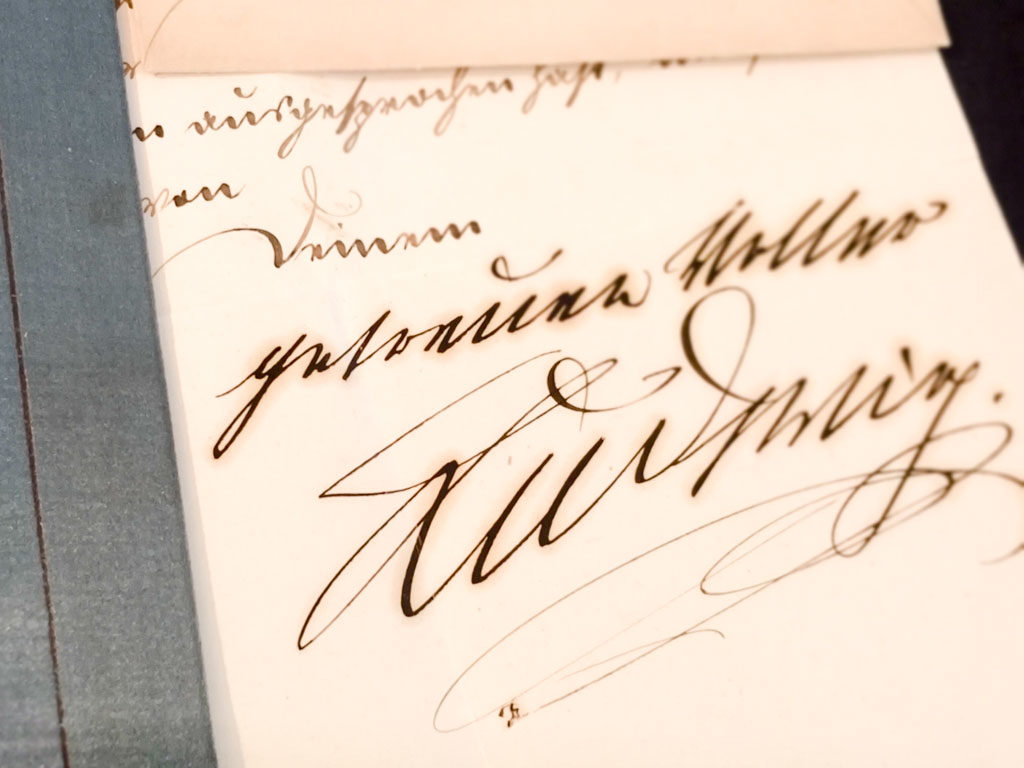 ausgesprochen hast,
von
Deinem
getreuen Vetter
Ludwig.